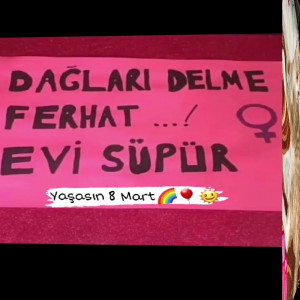 DAĞLARI DELME
FERHAT ...!
EVİ SÜPÜR
Yaşasın 8 Mart 🌈🎈🌞